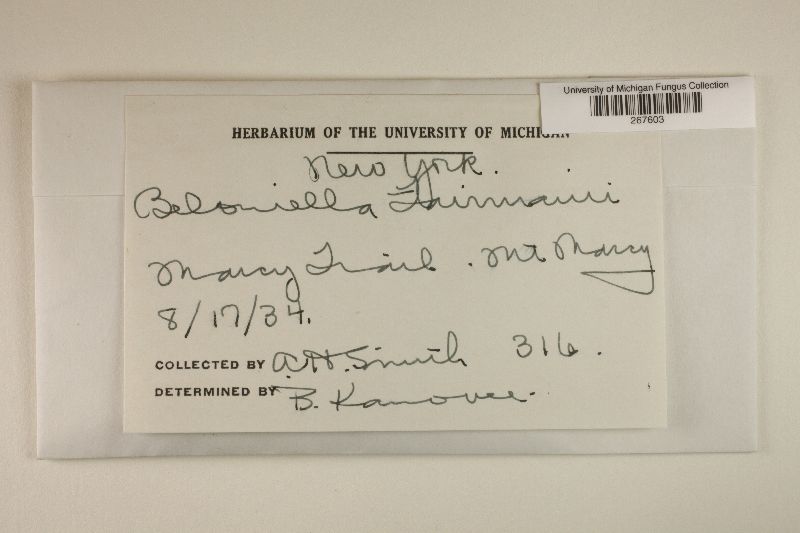 University of Michigan Fungus Collection
267603
HERBARIUM OF THE UNIVERSITY OF MICHIGAN
New York.
Beloniella Fairmani
Marcy Trail. Mt Marcy
8/17/34.
COLLECTED BY A.H. Smith 316.
DETERMINED BY B. Kanouse.